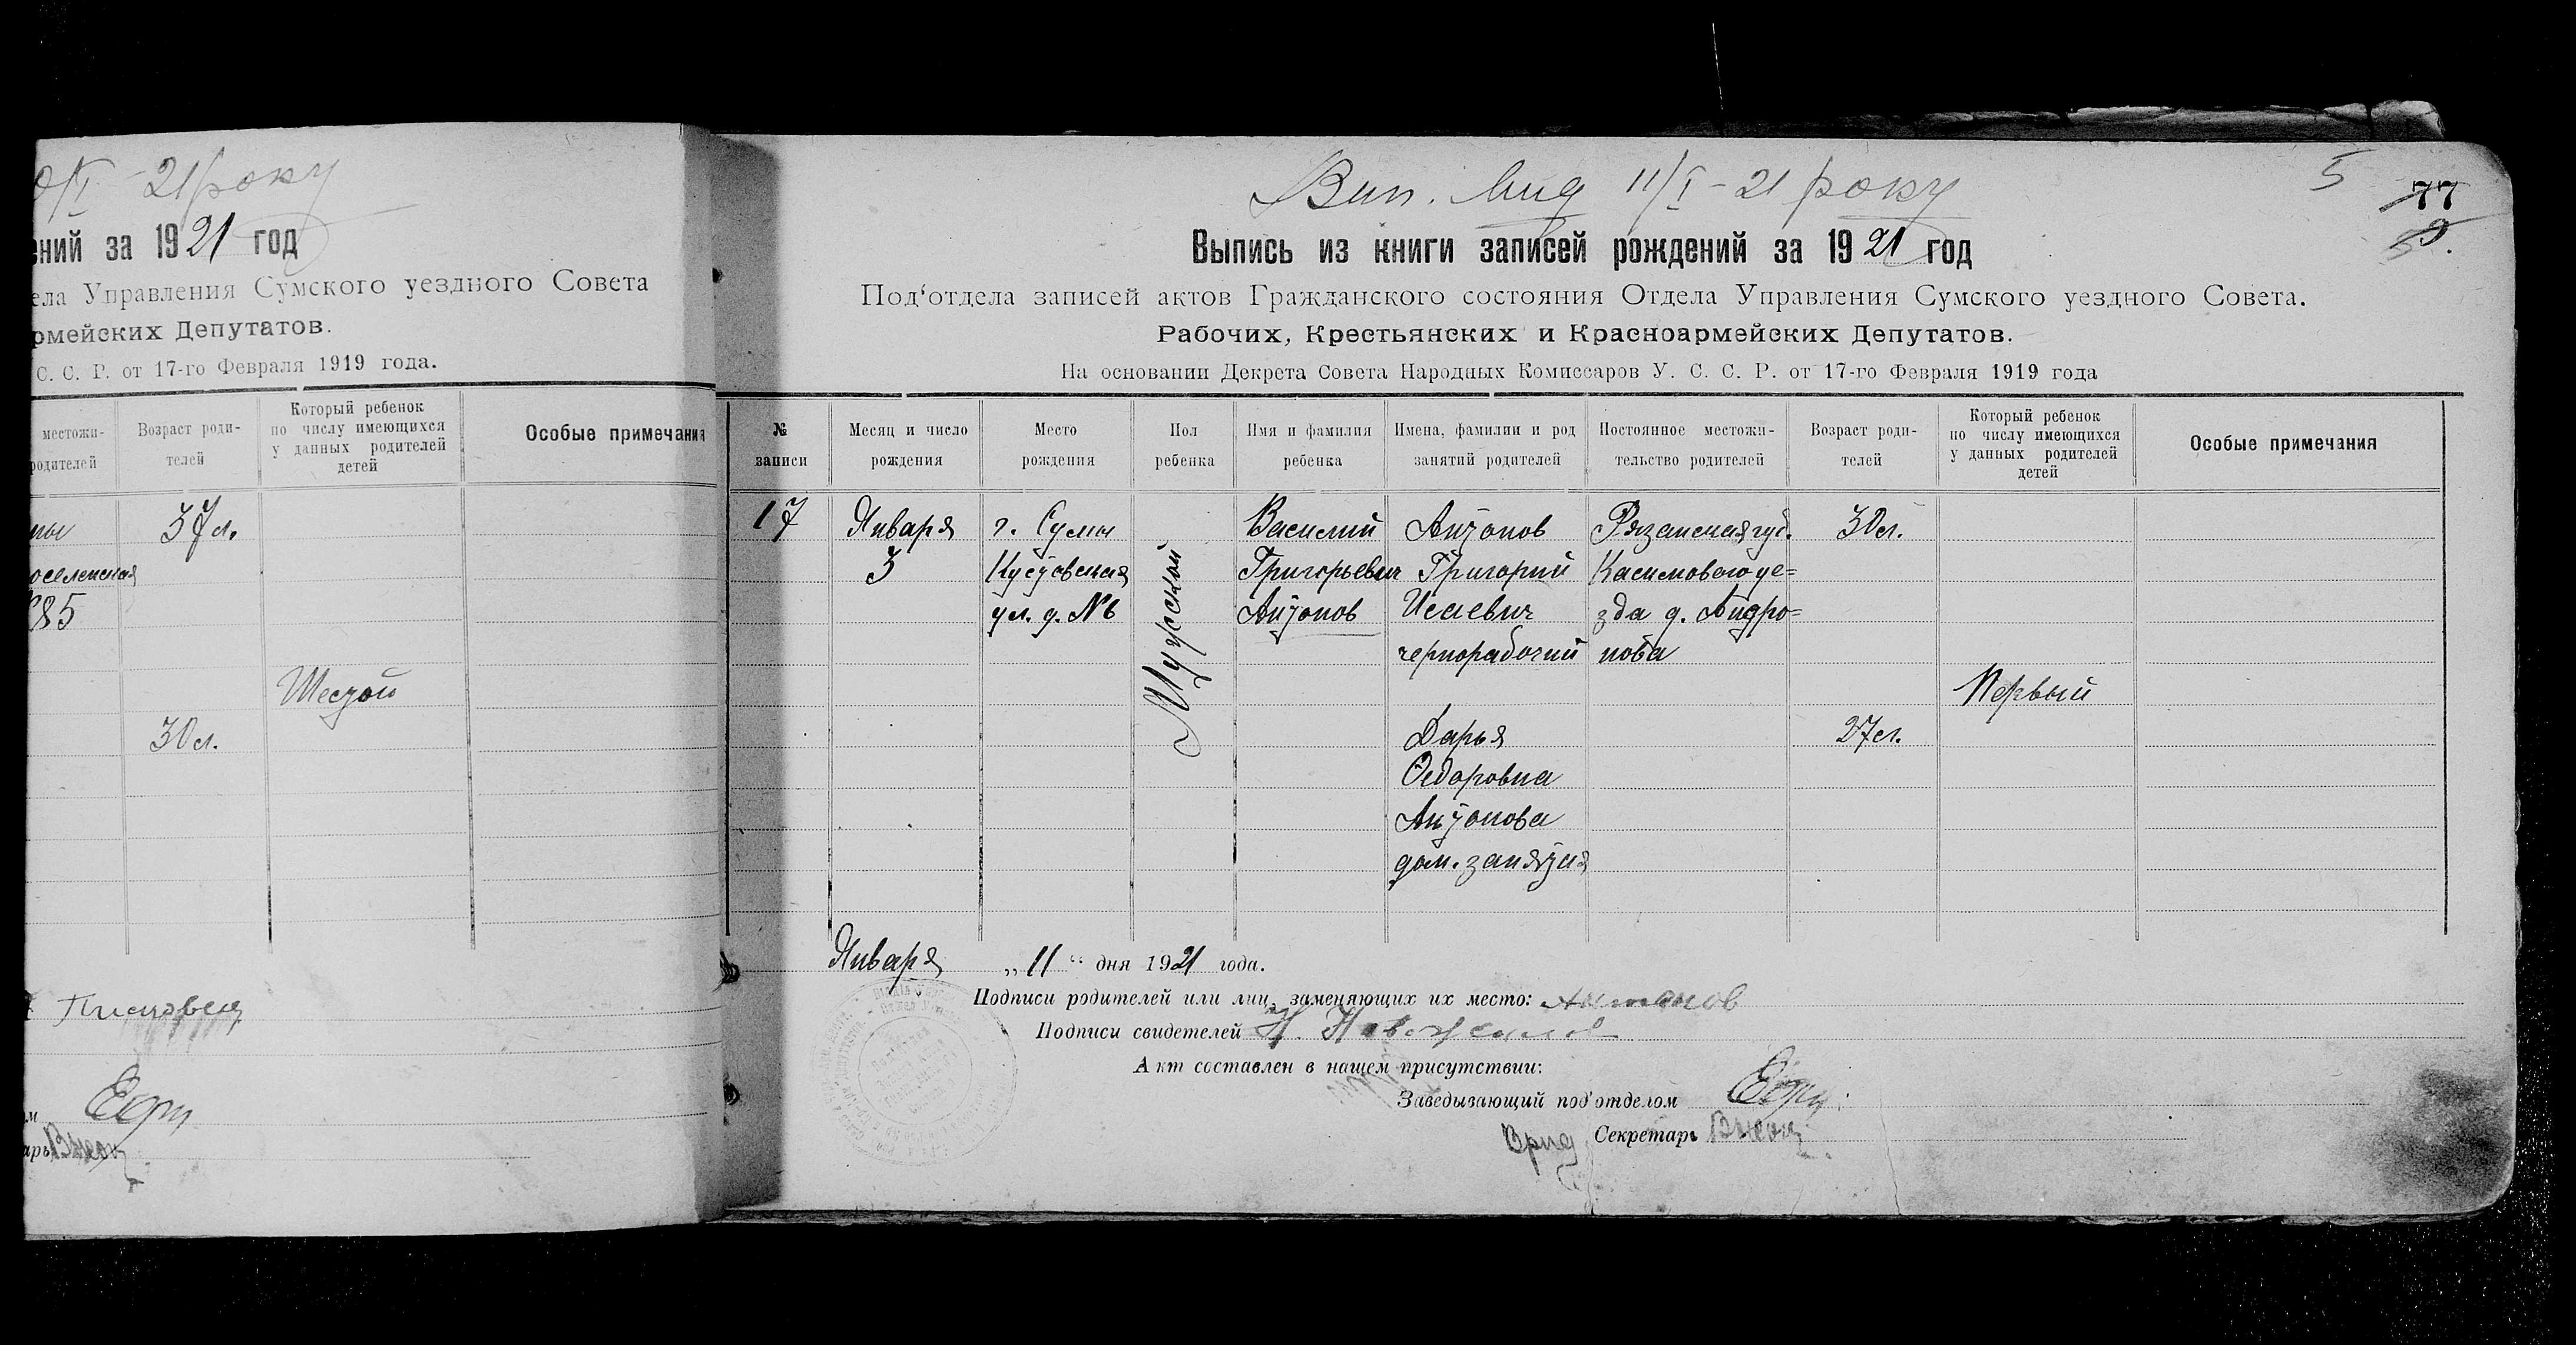 /I - 21 року
ений за 1921 год
ела Управления Сумского уездного Совета
рмейских Депутатов.
С. С. Р. от 17-го Февраля 1919 года.
местожи-
родителей
Возраст роди-
телей
Который ребенок
по числу имеющихся
у данных родителей
детей
Особые примечания
37 л.
оселенская
85
Шестой
30 л.
5
77
Вип. вид 11/I - 21 року
Выпись из книги записей рождений за 1921 год
Под‘отдела записей актов Гражданского состояния Отдела Управления Сумского уездного Совета.
Рабочих, Крестьянских и Красноармейских Депутатов.
На основании Декрета Совета Народных Комиссаров У. С. С. Р. от 17-го Февраля 1919 года
№
записи
Месяц и число
рождения
Место
рождения
Пол
ребенка
Имя и фамилия
ребенка
Имена, фамилии и род
занятий родителей
Постоянное местожи-
тельство родителей
Возраст роди-
телей
Который ребенок
по числу имеющихся
у данных родителей
детей
Особые примечания
17
Января
3
г. Сумы
Кустовская
ул. д. № 6
Мужской
Василий
Григорьевич
Антонов
Антонов
Григорий
Исаевич
чернорабочий
Дарья
Федоровна
Антонова
дом. занятия
Рязанская губ.
Касимового уе=
зда д. Андро=
нова
30 л.
27 л.
Первый
Января „11“ дня 1921 года.
Подписи родителей или лиц, заменяющих их место: Антонов
Подписи свидетелей Н.
Акт составлен в нашем присутствии:
Заведывающий под‘отделом
Врид Секретарь